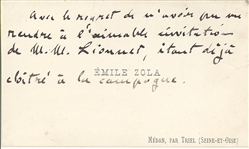 Avec le regret de n'avoir pu me
rendre à l'aimable invitation
de M. M. Lionnet, étant déjà
cloîtré à la campagne.
ÉMILE ZOLA
MÉDAN, PAR TRIEL (SEINE-ET-OISE)